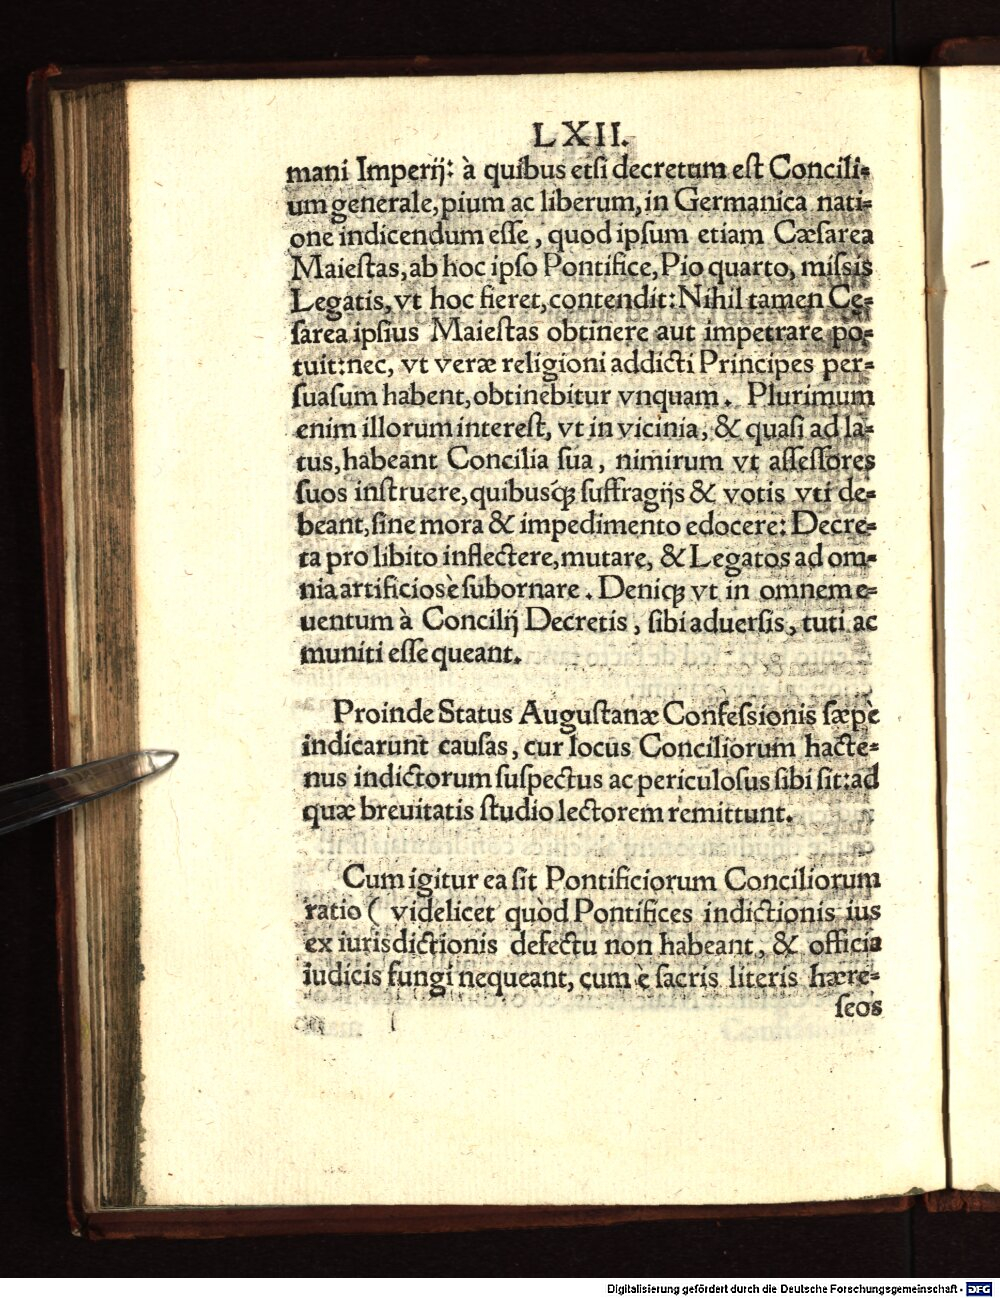 LXII.
mani Imperij: à quibus etsi decretum est Concili-
um generale, pium ac liberum, in Germanica nati-
one indicendum esse, quod ipsum etiam Cæsarea
Maiestas, ab hoc ipso Pontifice, Pio quarto, missis
Legatis, vt hoc fieret, contendit: Nihil tamen Ce-
sarea ipsius Maiestas obtinere aut impetrare po-
tuit: nec, vt veræ religioni addicti Principes per-
suasum habent, obtinebitur vnquam. Plurimum
enim illorum interest, vt in vicinia, & quasi ad la-
tus, habeant Concilia sua, nimirum vt assessores
suos instruere, quibusq́; suffragijs & votis vti de-
beant, sine mora & impedimento edocere: Decre-
ta pro libito inflectere, mutare, & Legatos ad om-
nia artificiosè subornare. Deniq; vt in omnem e-
uentum à Concilij Decretis, sibi aduersis, tuti ac
muniti esse queant.
Proinde Status Augustanæ Confessionis sæpè
indicarunt causas, cur locus Conciliorum hacte-
nus indictorum suspectus ac periculosus sibi sit: ad
quæ breuitatis studio lectorem remittunt.
Cum igitur ea sit Pontificiorum Conciliorum
ratio ( videlicet quòd Pontifices indictionis ius
ex iurisdictionis defectu non habeant, & officia
iudicis fungi nequeant, cum è sacris literis hære-
seos
Digitalisierung gefördert durch die Deutsche Forschungsgemeinschaft - DFG